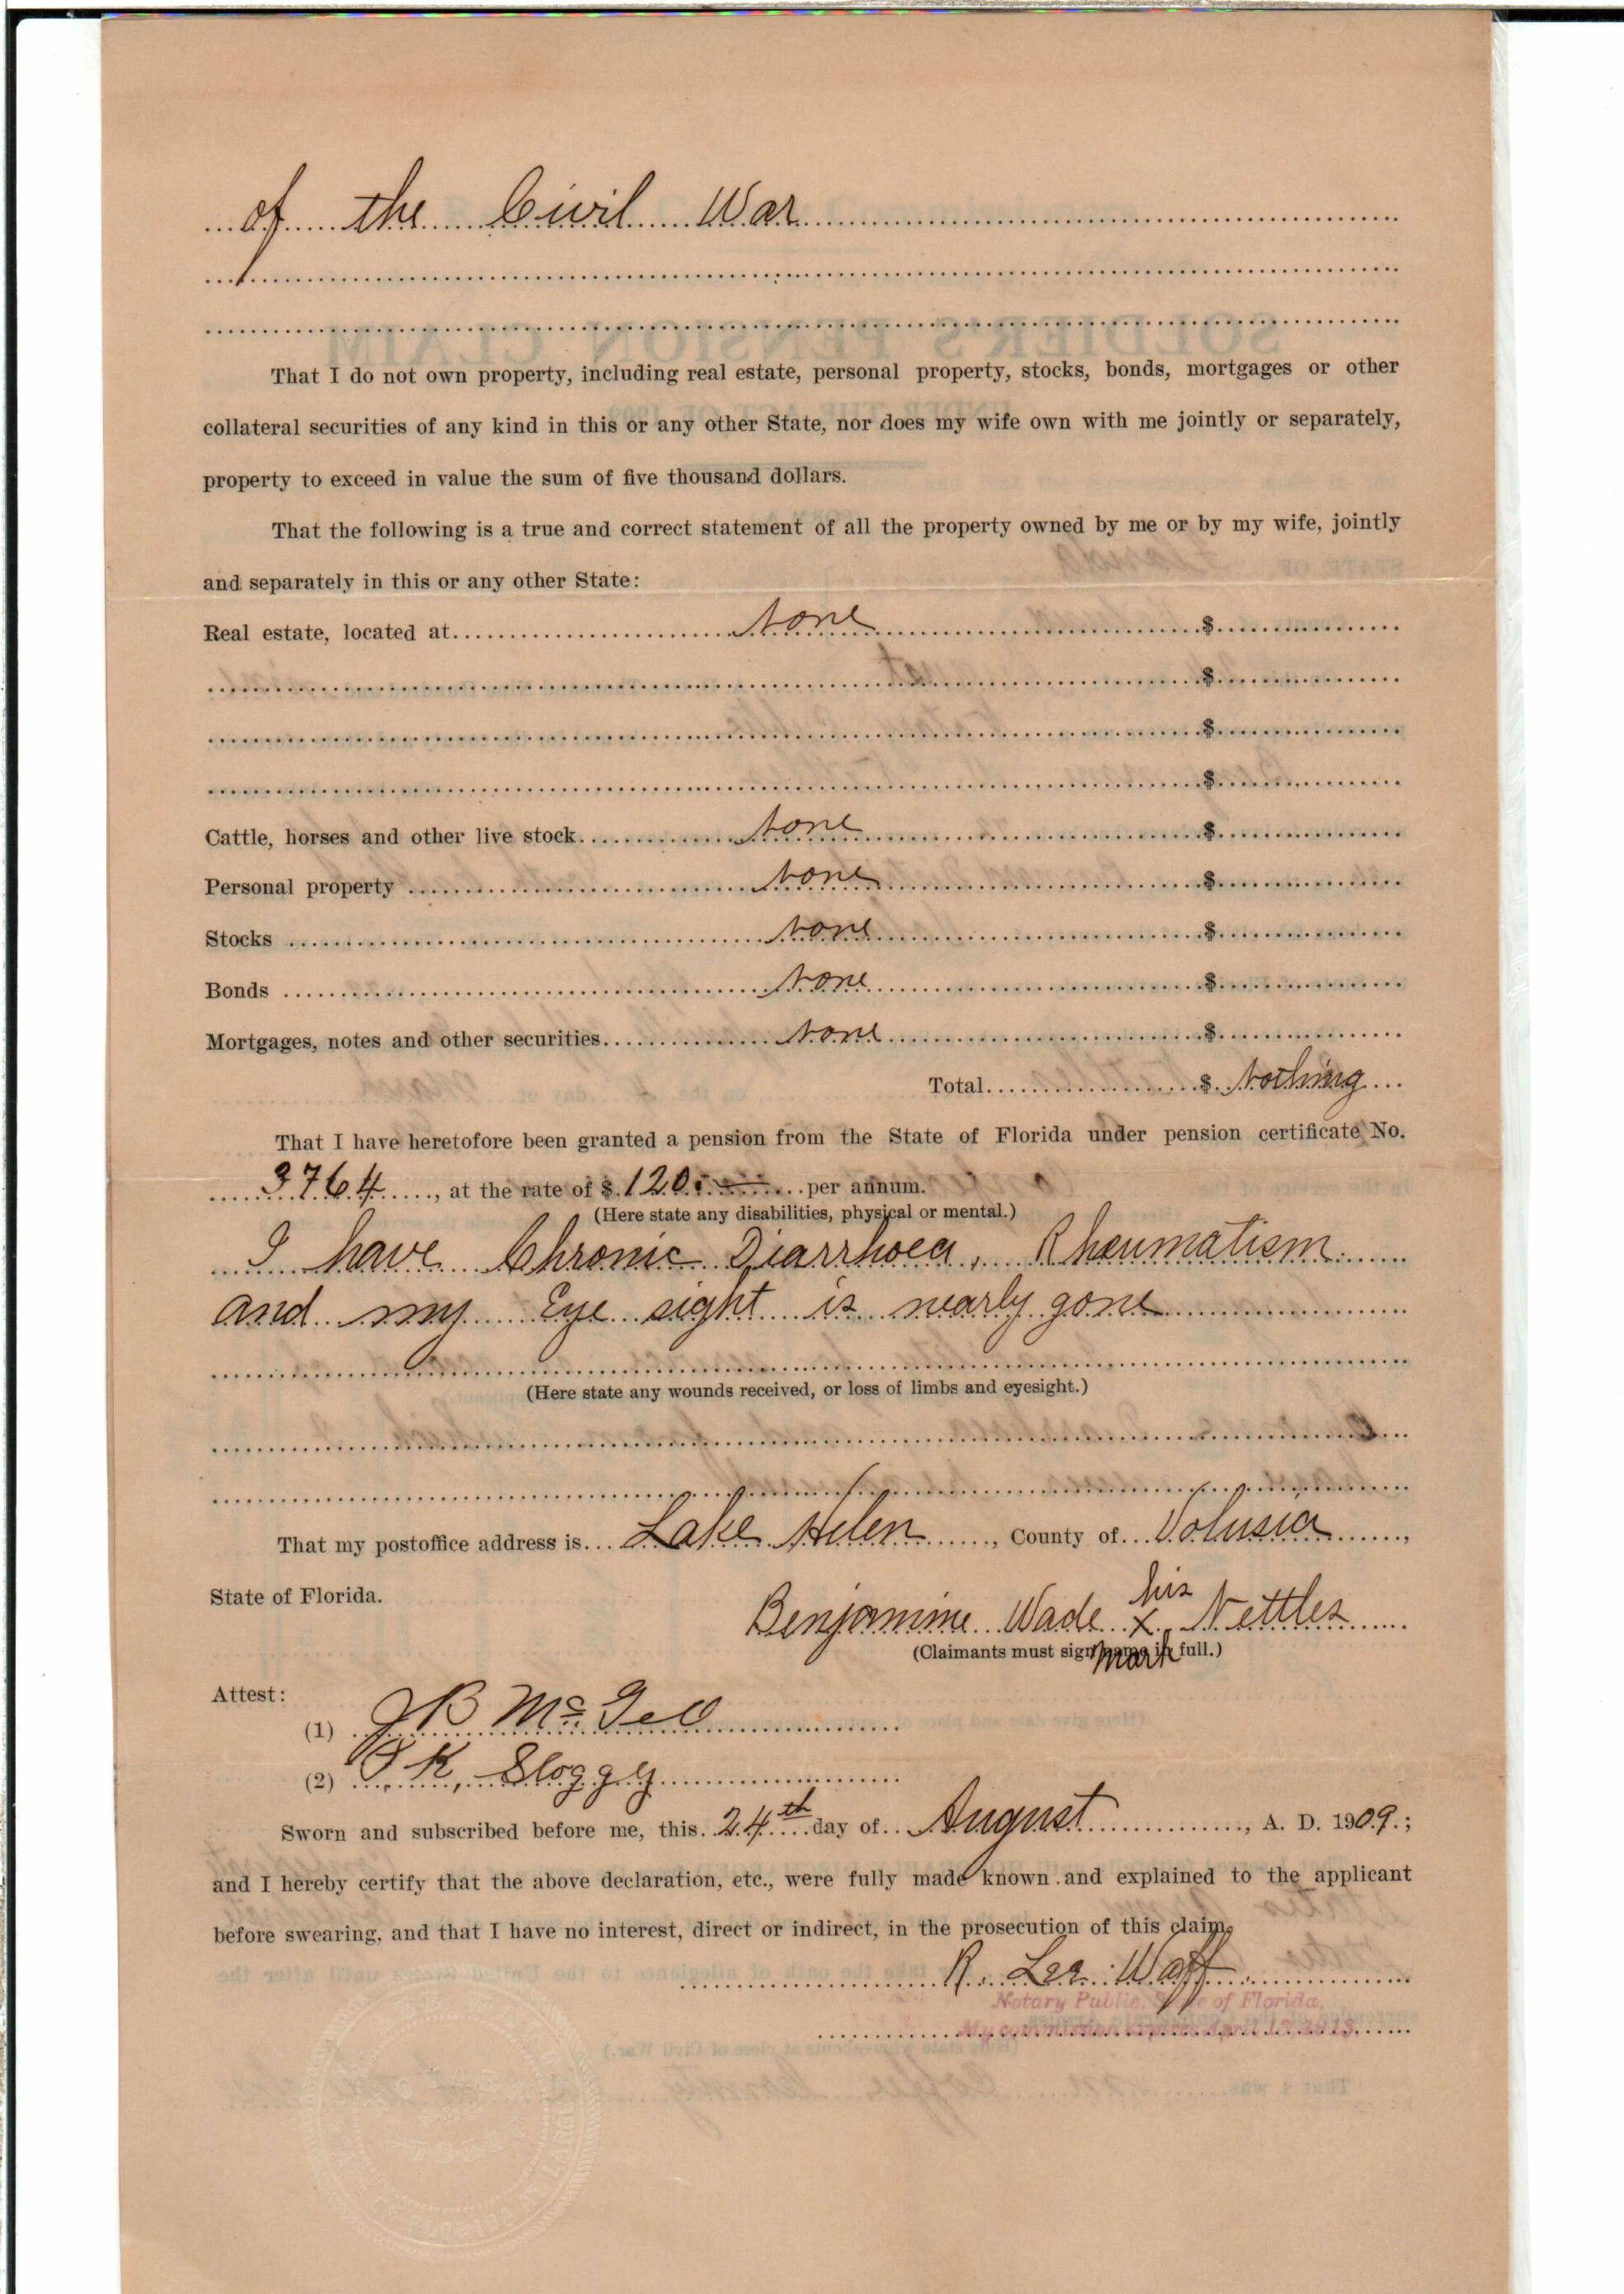 of the Civil War
That I do not own property, including real estate, personal property, stocks, bonds, mortgages or other
collateral securities of any kind in this or any other State, nor does my wife own with me jointly or separately,
property to exceed in value the sum of five thousand dollars.
That the following is a true and correct statement of all the property owned by me or by my wife, jointly
and separately in this or any other State:
Real estate, located at None $
$
$
$
Cattle, horses and other live stock None $
Personal property None $
Stocks None $
Bonds None $
Mortgages, notes and other securities None $
Total $ Nothing
That I have heretofore been granted a pension from the State of Florida under pension certificate No.
3764, at the rate of $ 120 per annum.
(Here state any disabilities, physical or mental.)
I have Chronic Diarrhoea, Rheumatism
and my Eye sight is nearly gone
(Here state any wounds received, or loss of limbs and eyesight.)
That my postoffice address is Lake Helen, County of Volusia,
State of Florida.
his
Benjamine Wade x Nettles
mark
(Claimants must sign name in full.)
Attest:
(1) J B
(2) K, Sloggy
Sworn and subscribed before me, this 24th day of August, A. D. 1909.;
and I hereby certify that the above declaration, etc., were fully made known and explained to the applicant
before swearing, and that I have no interest, direct or indirect, in the prosecution of this claim.
R. Lee Waff
Notary Public, State of Florida,
My commission expires April